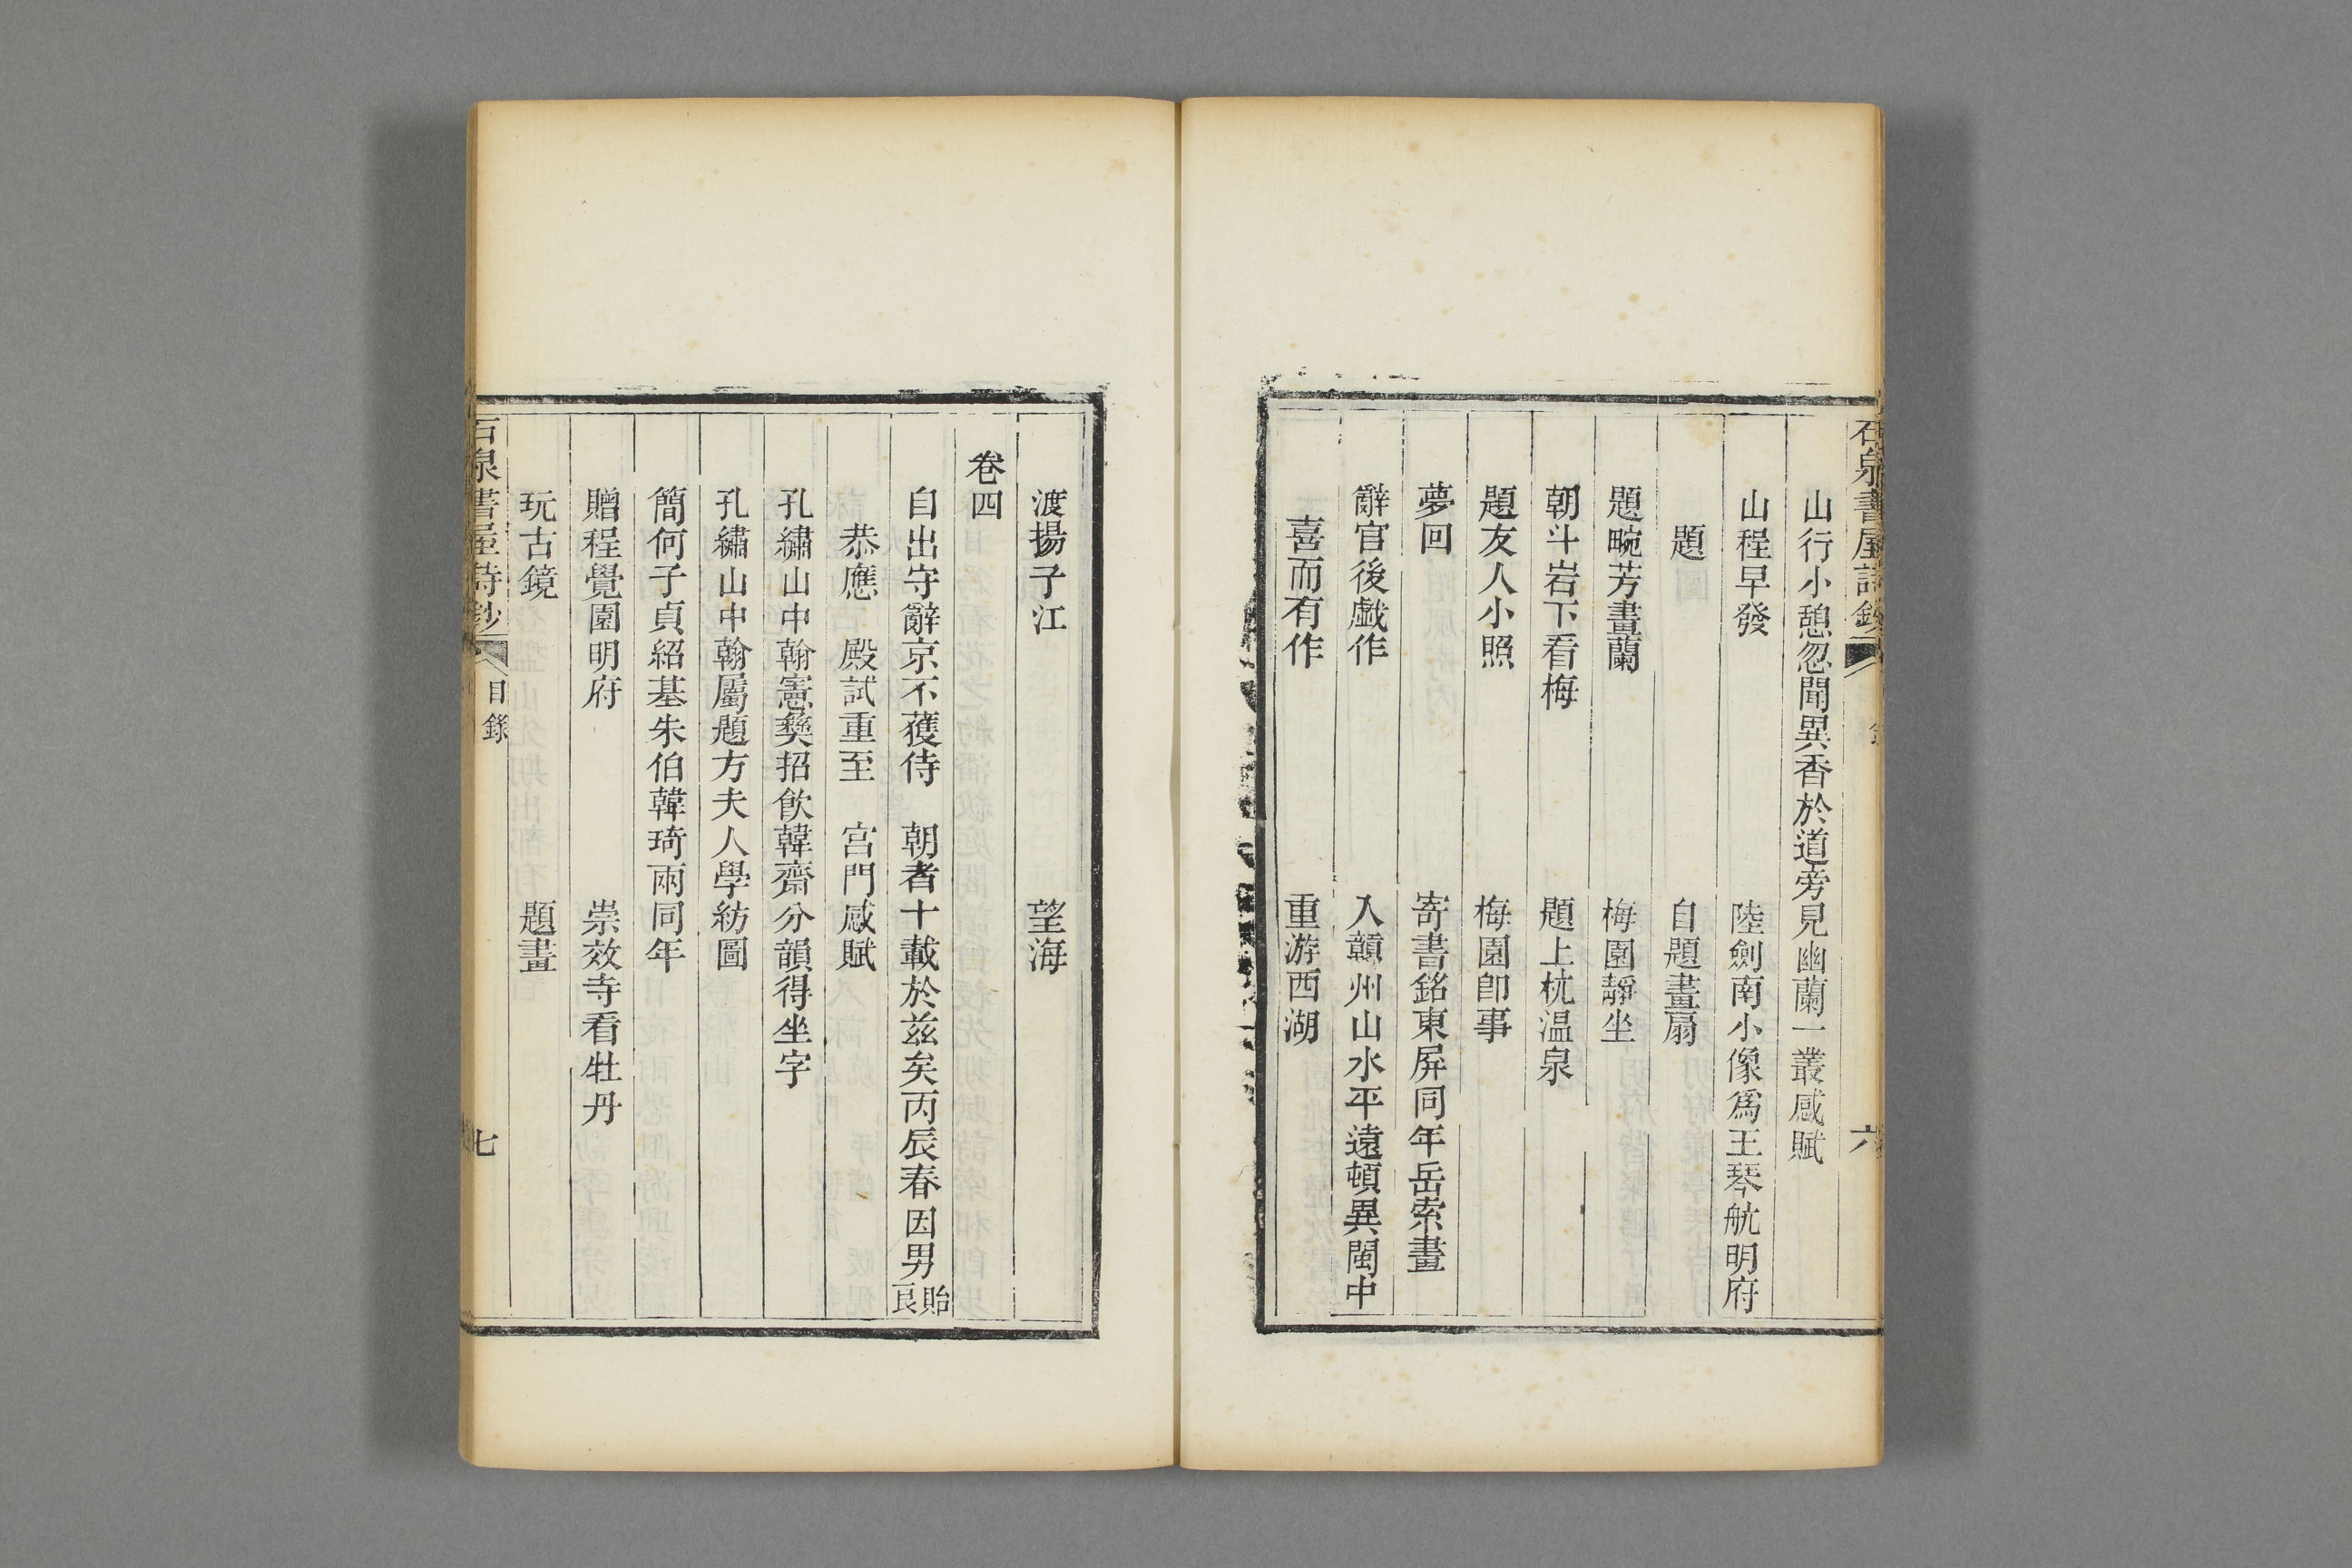 石泉書屋詩鈔 六
山行小憩忽聞異香於道旁見幽蘭一叢感賦
山程早發 陸劍南小像爲王琴航明府
題 自題畫扇
題畹芳畫蘭 梅園靜坐
朝斗岩下看梅 題上杭温泉
題友人小照 梅園卽事
夢回 寄書銘東屏同年岳索畫
辭官後戲作 入贛州山水平遠頓異閩中
喜而有作 重游西湖
渡揚子江 望海
卷四
自出守辭京不獲侍 朝者十載於茲矣丙辰春因男貽良
恭應 殿試重至 宮門感賦
孔繡山中翰憲彝招飲韓齋分韻得坐字
孔繡山中翰屬題方夫人學紡圖
簡何子貞紹基朱伯韓琦兩同年
贈程覺園明府 崇效寺看牡丹
玩古鏡 題畫
石泉書屋詩鈔 目錄 七